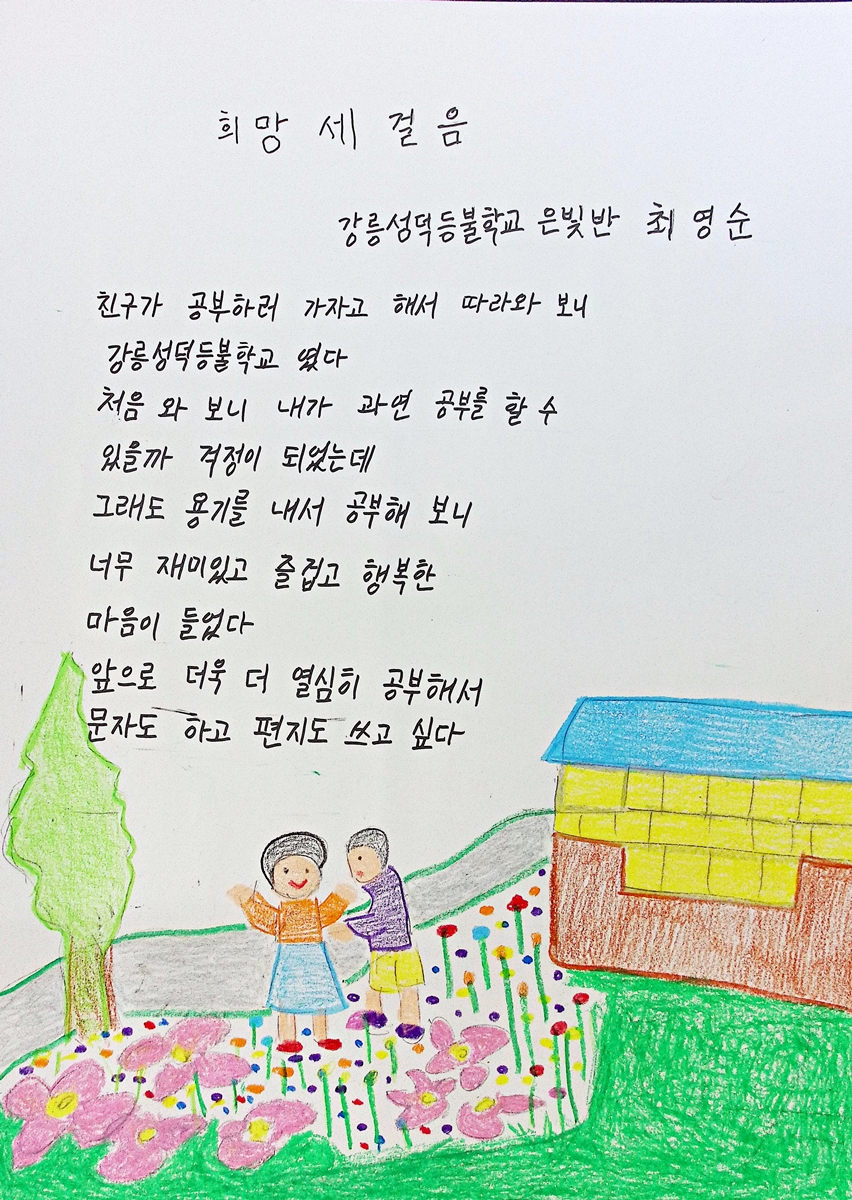 희망 세 걸음
강릉성덕등불학교 은빛반 최영순
친구가 공부하러 가자고 해서 따라와 보니
강릉성덕등불학교 였다
처음 와 보니 내가 과연 공부를 할 수
있을까 걱정이 되었는데
그래도 용기를 내서 공부해 보니
너무 재미있고 즐겁고 행복한
마음이 들었다
앞으로 더욱 더 열심히 공부해서
문자도 하고 편지도 쓰고 싶다